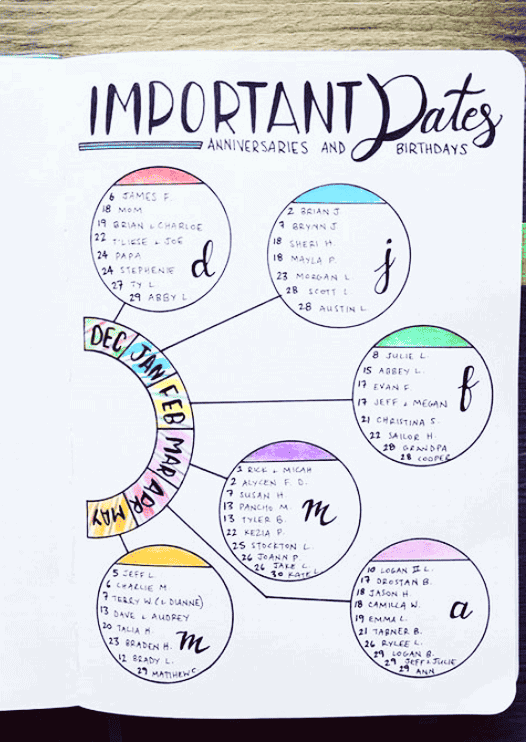 IMPORTANT Dates
ANNIVERSARIES AND BIRTHDAYS
6 JAMES F.
18 MOM
19 BRIAN & CHARLOE
22 T'LIESE & JOE
24 PAPA
24 STEPHENIE
27 TY L.
29 ABBY L
d
2 BRIAN J
7 BRYNN J
18 SHERI H.
18 MAYLA P.
23 MORGAN L.
28 SCOTT L
28 AUSTIN L.
j
DEC
JAN
FEB
MAR
APR
MAY
8 JULIE L.
15 ABBEY L.
17 EVAN F.
17 JEFF & MEGAN
21 CHRISTINA S.
22 SAILOR H.
28 GRANDPA
28 COOPER
f
1 RICK & MICAH
2 ALYCEN F. D.
7 SUSAN H.
13 PANCHO M.
13 TYLER B.
22 KEZIA P.
25 STOCKTON L.
26 JOANN P.
26 JAKE L.
30 KATE L
m
5 JEFF L.
6 CHARLIE M.
7 TERRY W (& DUNNE)
13 DAVE & AUDREY
20 TALIA H.
23 BRADEN H.
12 BRADY L.
29 MATTHEW C
m
10 LOGAN II L.
17 DROSTAN B.
18 JASON H.
18 CAMILLA W.
19 EMMA L.
21 TABNER B.
26 RYLEE L.
29 LOGAN B.
29 JEFF & JULIE
29 ANN
a